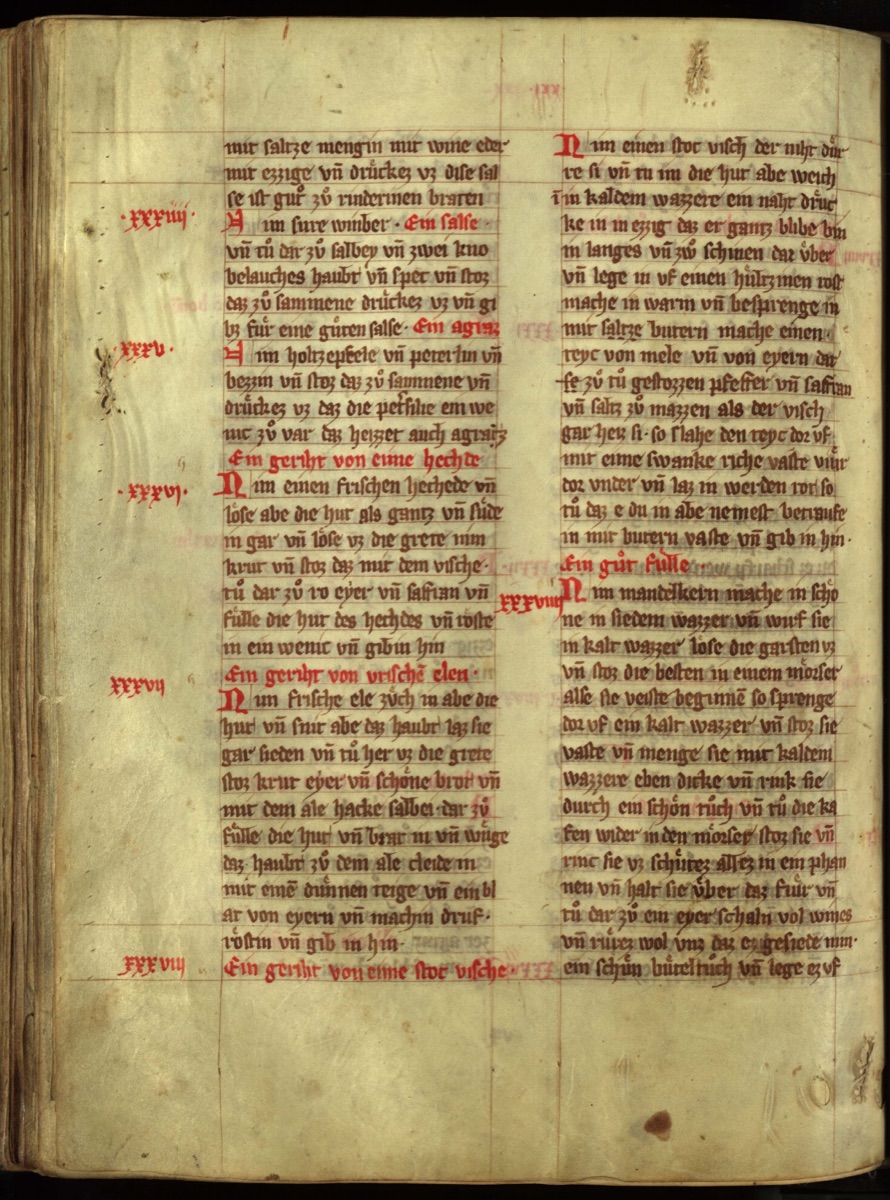 mit saltze mengin mit wine eder
mit ezzige vn̄ drückez vz dise sal
se ist gut zů rinderinen braten
·xxxiiii·
Nim sure winber · Ein salse ·
vn̄ tů dar zů salbey vn̄ zwei kno
belauches haubt vn̄ spec vn̄ stoz
daz zů sammene drückez vz vn̄ gi
bz für eine gůten salse · Ein agraz
·xxxv·
Nim holtzepfele vn̄ peterlin vn̄
bezzin vn̄ stoz daz zů sammene vn̄
drückez vz daz die pet'silie ein we
nic zů var daz heizzet auch agratz
Ein geriht von eime hechde
·xxxvi·
Nim einen frischen hechede vn̄
löse abe die hut als gantz vn̄ süde
in gar vn̄ löse vz die grete nim
krut vn̄ stoz daz mit dem vische ·
tů dar zů ro eyer vn̄ saffran vn̄
fülle die hut des hechdes vn̄ roste
in ein wenic vn̄ gib in hin
Ein geriht von vrischē elen ·
xxxvii
Nim frische ele züch in abe die
hut vn̄ snit abe daz haubt laz sie
gar sieden vn̄ tů her vz die grete
stoz krut eyer vn̄ schöne brot vn̄
mit dem ale hacke salbei · dar zů
fülle die hut vn̄ brat in vn̄ wüge
daz haubt zů dem ale cleide in
mit einē dünnen teige vn̄ ein bl
at von eyern vn̄ machin druf ·
röstin vn̄ gib in hin ·
xxxviii
Ein geriht von eime stoc vische ·
Nim einen stoc visch der niht dür
re si vn̄ tu im die hut abe weich
in kaldem wazzere ein naht drüc
ke in in ezzig daz er gantz blibe bin
in langes vn̄ zwo schinen dar über
vn̄ lege in vf einen hültzinen rost
mache in warm vn̄ besprenge in
mit saltze butern mache einen ·
teyc von mele vn̄ von eyern dar
fe zů tů gestozzen pfeffer vn̄ saffran
vn̄ saltz zů mazzen als der visch
gar heiz si · so slahe den teyc dor vf
mit eime swanke riche vaste viur
dor vnder vn̄ laz in werden rot so
tů daz e du in abe nemest betraufe
in mit butern vaste vn̄ gib in hin ·
Ein gůt fülle ·
xxxviiii
Nim mandelkern mache in schö
ne in siedem wazzer vn̄ wirf sie
in kalt wazzer löse die garsten vz
vn̄ stoz die besten in einem mörser
alse sie veiste beginnē so sprenge
dor vf ein kalt wazzer vn̄ stoz sie
vaste vn̄ menge sie mit kaldem
wazzere eben dicke vn̄ rink sie
durch ein schön tůch vn̄ tů die ka
fen wider in den mörser stoz sie vn̄
rinc sie vz schütez allez in ein phan
nen vn̄ halt sie über daz fuür vn̄
tů dar zů ein eyer schaln vol wines
vn̄ rürez wol vnz daz ez gesiede nim ·
ein schün büteltůch vn̄ lege ez vf